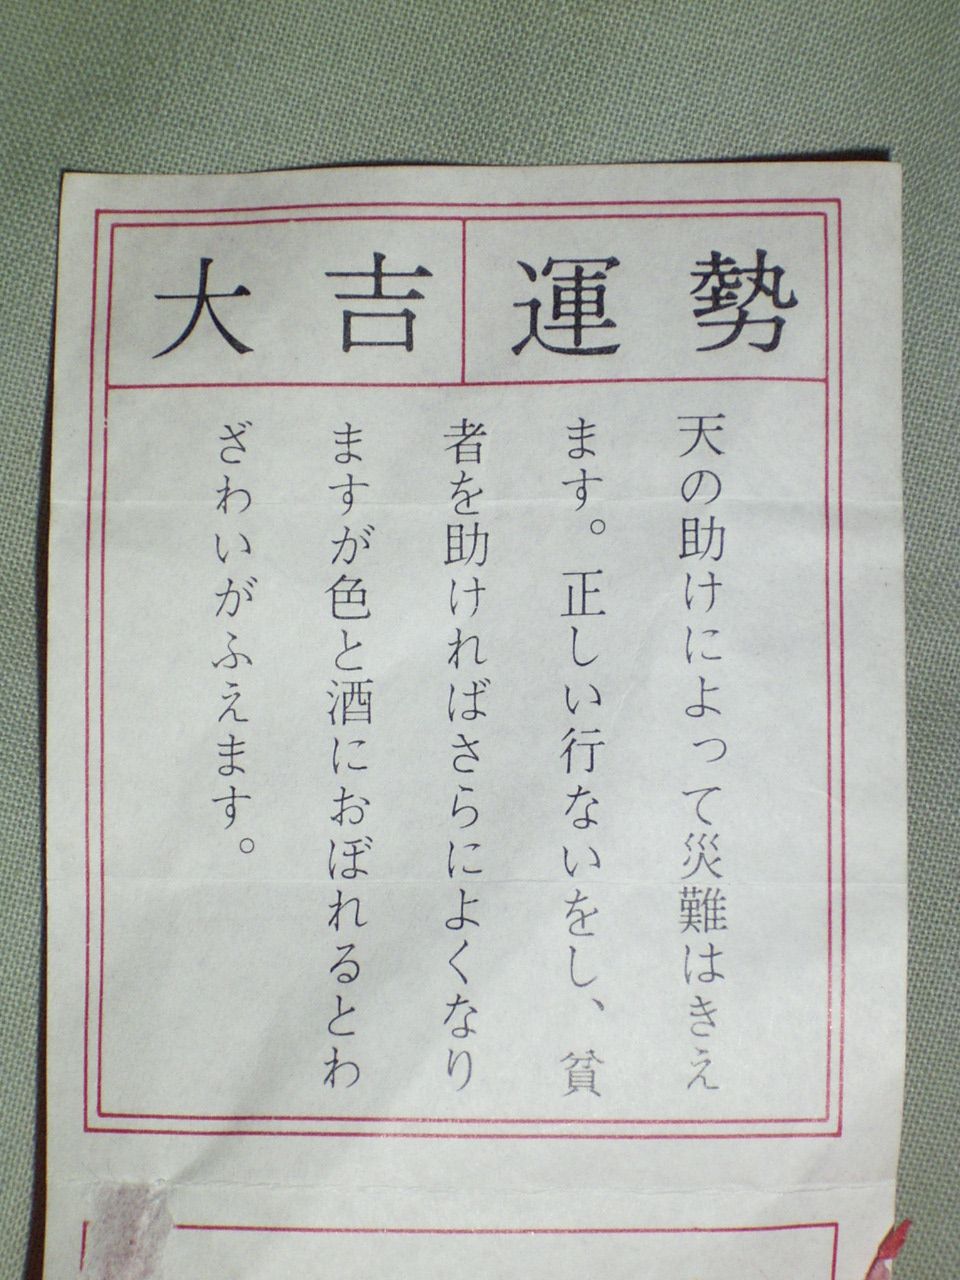 大吉運勢
天の助けによって災難はきえ
ます。正しい行ないをし、貧
者を助ければさらによくなり
ますが色と酒におぼれるとわ
ざわいがふえます。